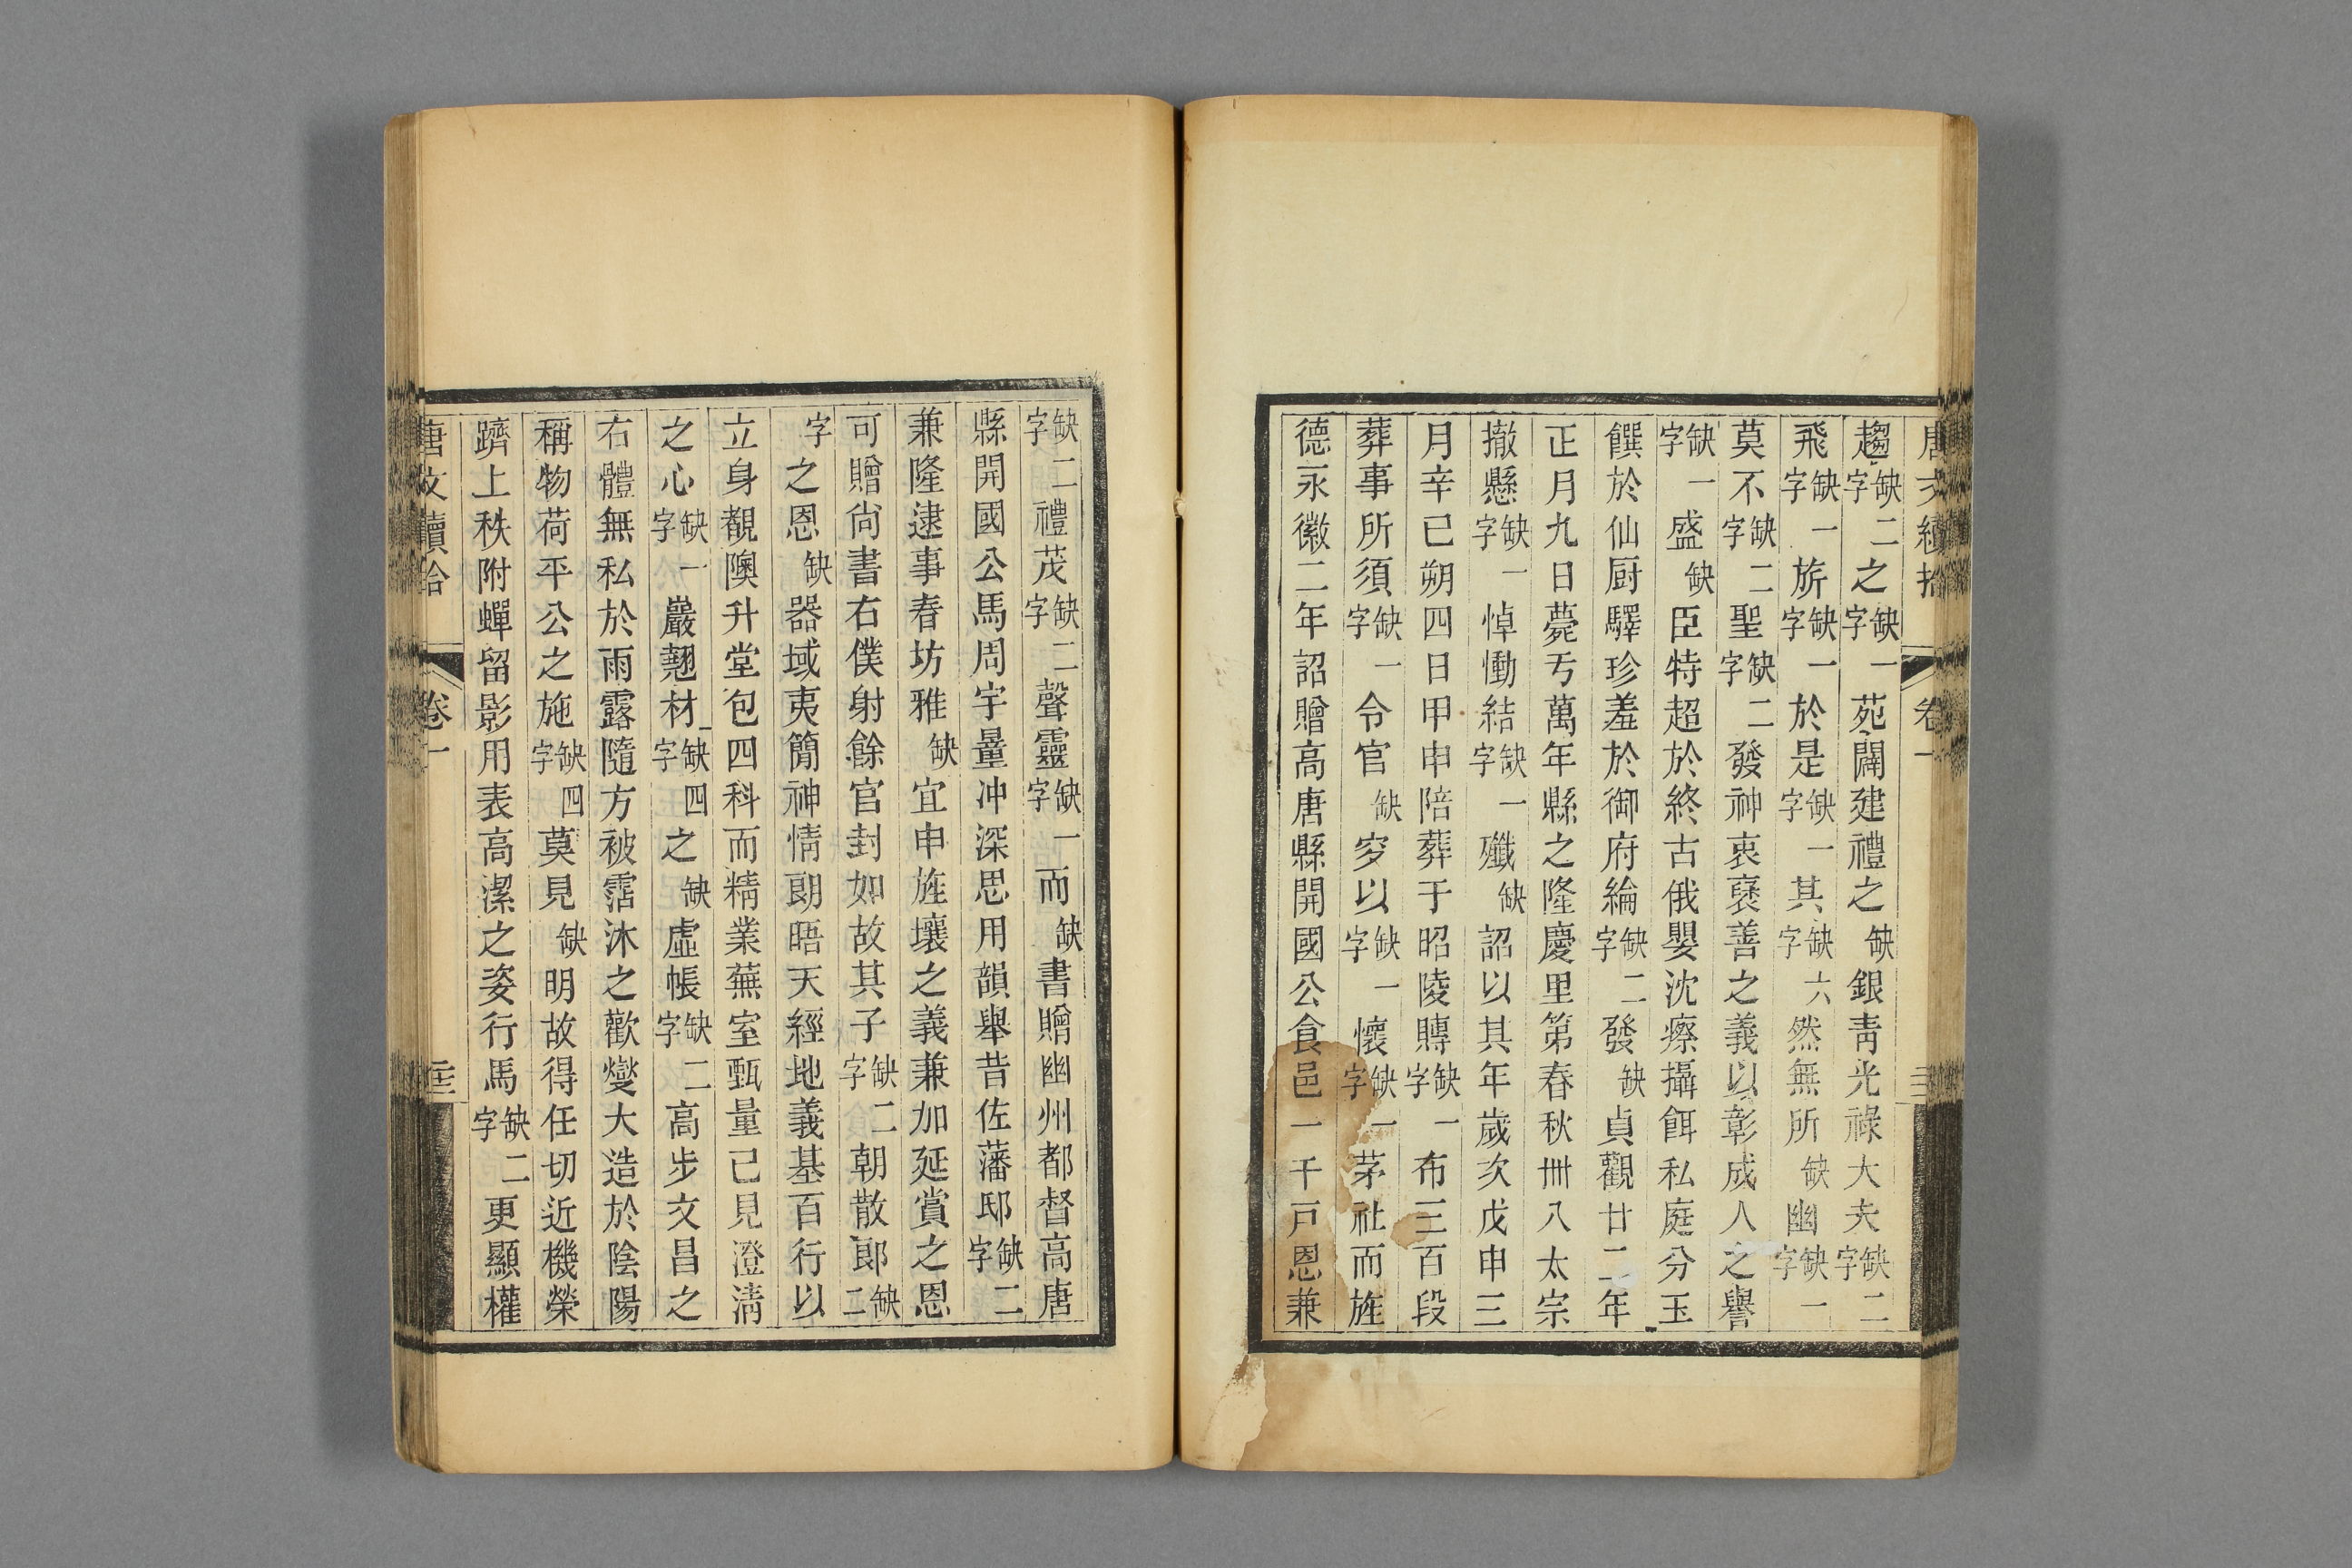 趨缺二字之缺一字苑闢建禮之缺銀青光祿大夫缺二字
飛缺一字旂缺一字於是缺一字其缺六字然無所缺幽缺一字
莫不缺二字聖缺二字發神衷襃善之義以彰成人之譽
缺一字盛缺臣特超於終古俄嬰沈瘵攝餌私庭分玉
饌於仙厨驛珍羞於御府綸缺二字發缺貞觀廿二年
正月九日薨亐萬年縣之隆慶里第春秋卌八太宗
撤懸缺一字悼慟結缺一字殲缺詔以其年歲次戊申三
月辛巳朔四日甲申陪葬于昭陵賻缺一字布三百段
葬事所須缺一字令官缺穸以缺一字懷缺一字茅社而旌
德永徽二年詔贈高唐縣開國公食邑一千戸恩兼
缺二字禮茂缺二字聲靈缺一字而缺書贈幽州都督高唐
縣開國公馬周宇量冲深思用韻舉昔佐藩邸缺二字
兼隆逮事春坊雅缺宜申旌壤之義兼加延賞之恩
可贈尙書右僕射餘官封如故其子缺二字朝散郞缺二
字之恩缺器域夷簡神情朗晤天經地義基百行以
立身覩隩升堂包四科而精業蕪室甄量已見澄淸
之心缺一字巖翹材缺四字之缺虛帳缺二字高步文昌之
右體無私於雨露隨方被霑沐之歡燮大造於陰陽
稱物荷平公之施缺四字莫見缺明故得任切近機榮
躋上秩附蟬留影用表高潔之姿行馬缺二字更顯權
唐文續拾 卷一